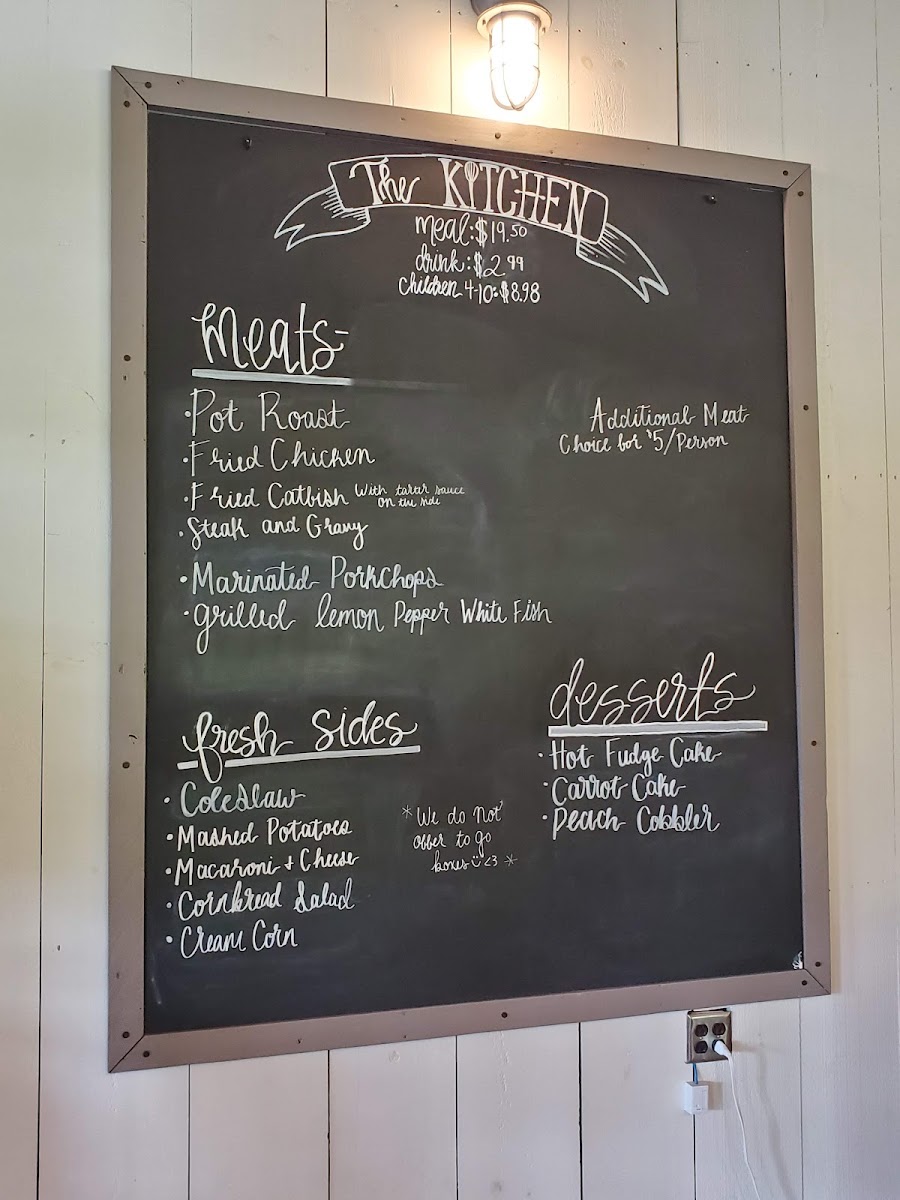 The KITCHEN
meal: $19.50
drink: $2.99
Children 4-10: $8.98
Meats-
• Pot Roast
• Fried Chicken
• Fried Catfish With tartar sauce
on the side
• Steak and Gravy
• Marinated Porkchops
• Grilled lemon Pepper White Fish
Additional Meat
Choice for $5/Person
fresh sides
• Coleslaw
• Mashed Potatoes
• Macaroni + Cheese
• Cornbread Salad
• Cream Corn
* We do not
offer to go
boxes ☺ <3 *
desserts
• Hot Fudge Cake
• Carrot Cake
• Peach Cobbler